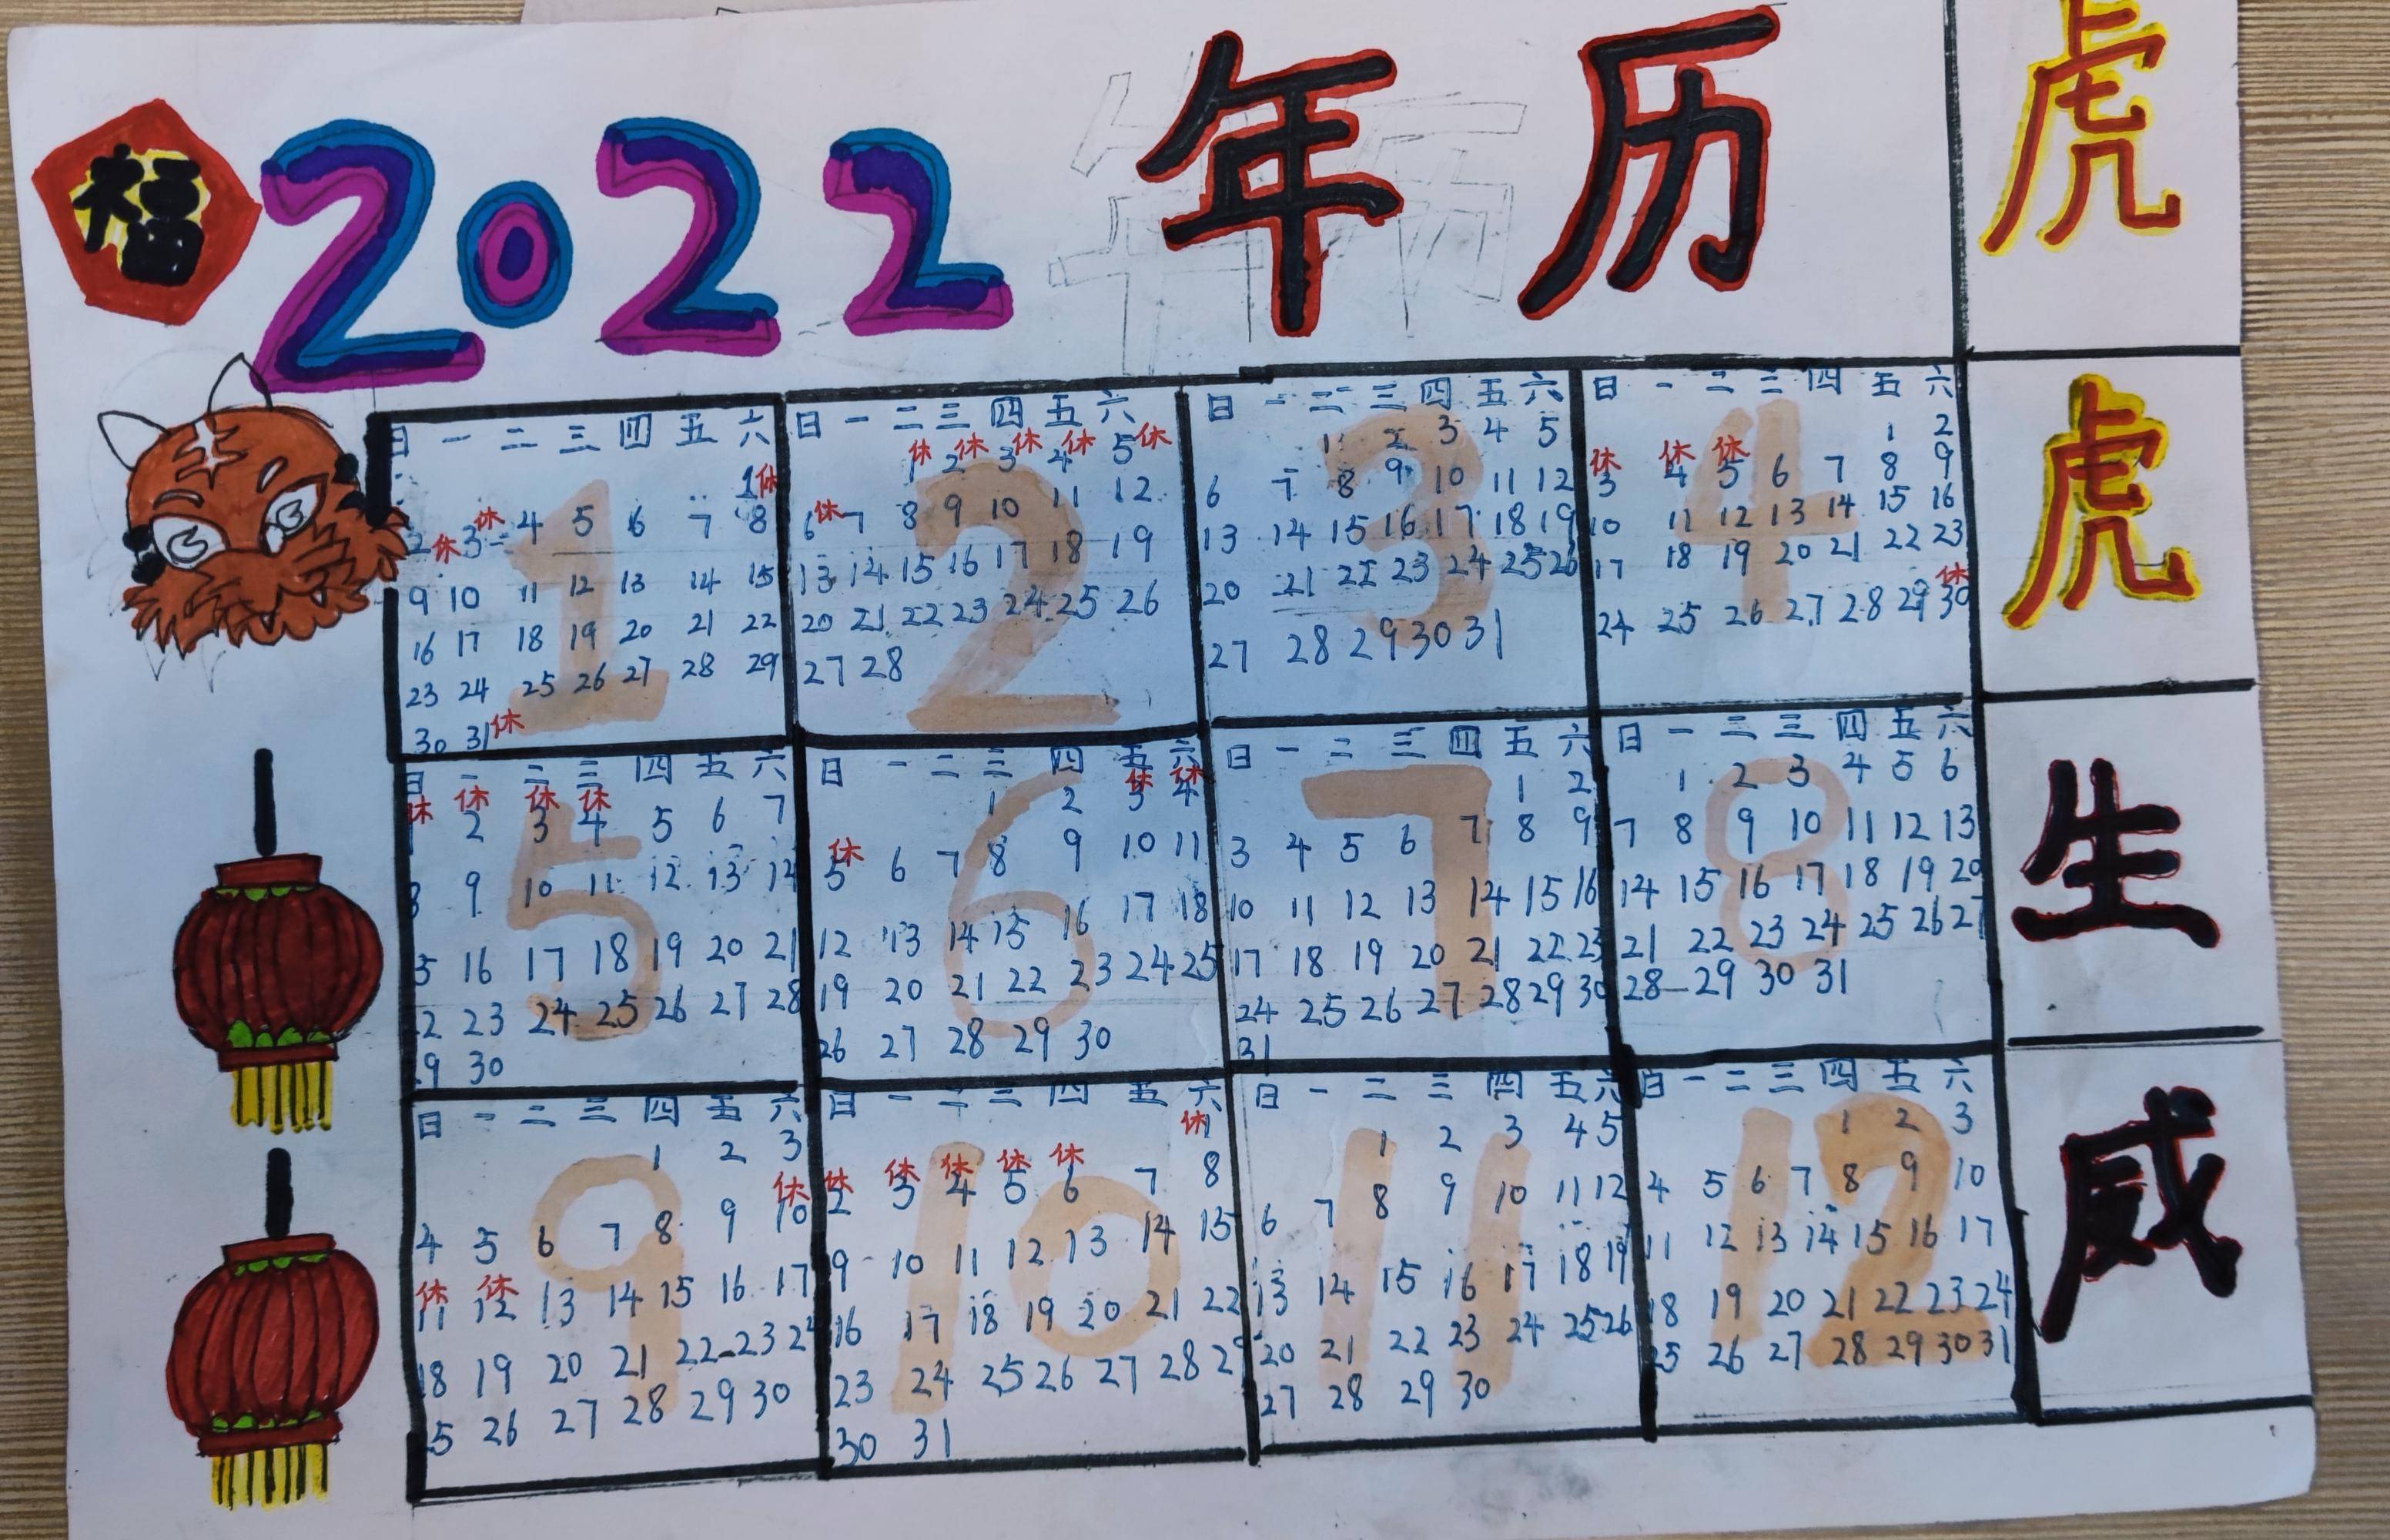 福
2022 年历
虎
虎
生
威
日 一 二 三 四 五 六
1休
2休 3休 4 5 6 7 8
9 10 11 12 13 14 15
16 17 18 19 20 21 22
23 24 25 26 27 28 29
30 31休
1
日 一 二 三 四 五 六
休 休 休 休 休
1 2 3 4 5
6休 7 8 9 10 11 12
13 14 15 16 17 18 19
20 21 22 23 24 25 26
27 28
2
日 一 二 三 四 五 六
1 2 3 4 5
6 7 8 9 10 11 12
13 14 15 16 17 18 19
20 21 22 23 24 25 26
27 28 29 30 31
3
日 一 二 三 四 五 六
1 2
休 休 休
3 4 5 6 7 8 9
10 11 12 13 14 15 16
17 18 19 20 21 22 23
休
24 25 26 27 28 29 30
4
日 一 二 三 四 五 六
休 休 休 休
1 2 3 4 5 6 7
8 9 10 11 12 13 14
5 16 17 18 19 20 21
2 23 24 25 26 27 28
9 30
5
日 一 二 三 四 五 六
休 休
1 2 3 4
休
5 6 7 8 9 10 11
12 13 14 15 16 17 18
19 20 21 22 23 24 25
26 27 28 29 30
6
日 一 二 三 四 五 六
1 2
3 4 5 6 7 8 9
10 11 12 13 14 15 16
17 18 19 20 21 22 23
24 25 26 27 28 29 30
31
7
日 一 二 三 四 五 六
1 2 3 4 5 6
7 8 9 10 11 12 13
14 15 16 17 18 19 20
21 22 23 24 25 26 27
28 29 30 31
8
日 一 二 三 四 五 六
1 2 3
休
4 5 6 7 8 9 10
休 休
11 12 13 14 15 16 17
18 19 20 21 22 23 24
5 26 27 28 29 30
9
日 一 二 三 四 五 六
休1
休 休 休 休 休
2 3 4 5 6 7 8
9 10 11 12 13 14 15
16 17 18 19 20 21 22
23 24 25 26 27 28 29
30 31
10
日 一 二 三 四 五 六
1 2 3 4 5
6 7 8 9 10 11 12
13 14 15 16 17 18 19
20 21 22 23 24 25 26
27 28 29 30
11
日 一 二 三 四 五 六
1 2 3
4 5 6 7 8 9 10
11 12 13 14 15 16 17
18 19 20 21 22 23 24
25 26 27 28 29 30 31
12